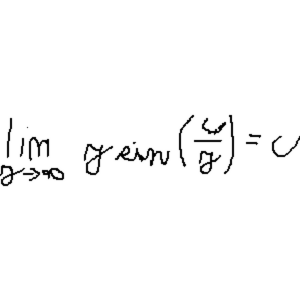 lim y→∞ y sin(u/y) = u